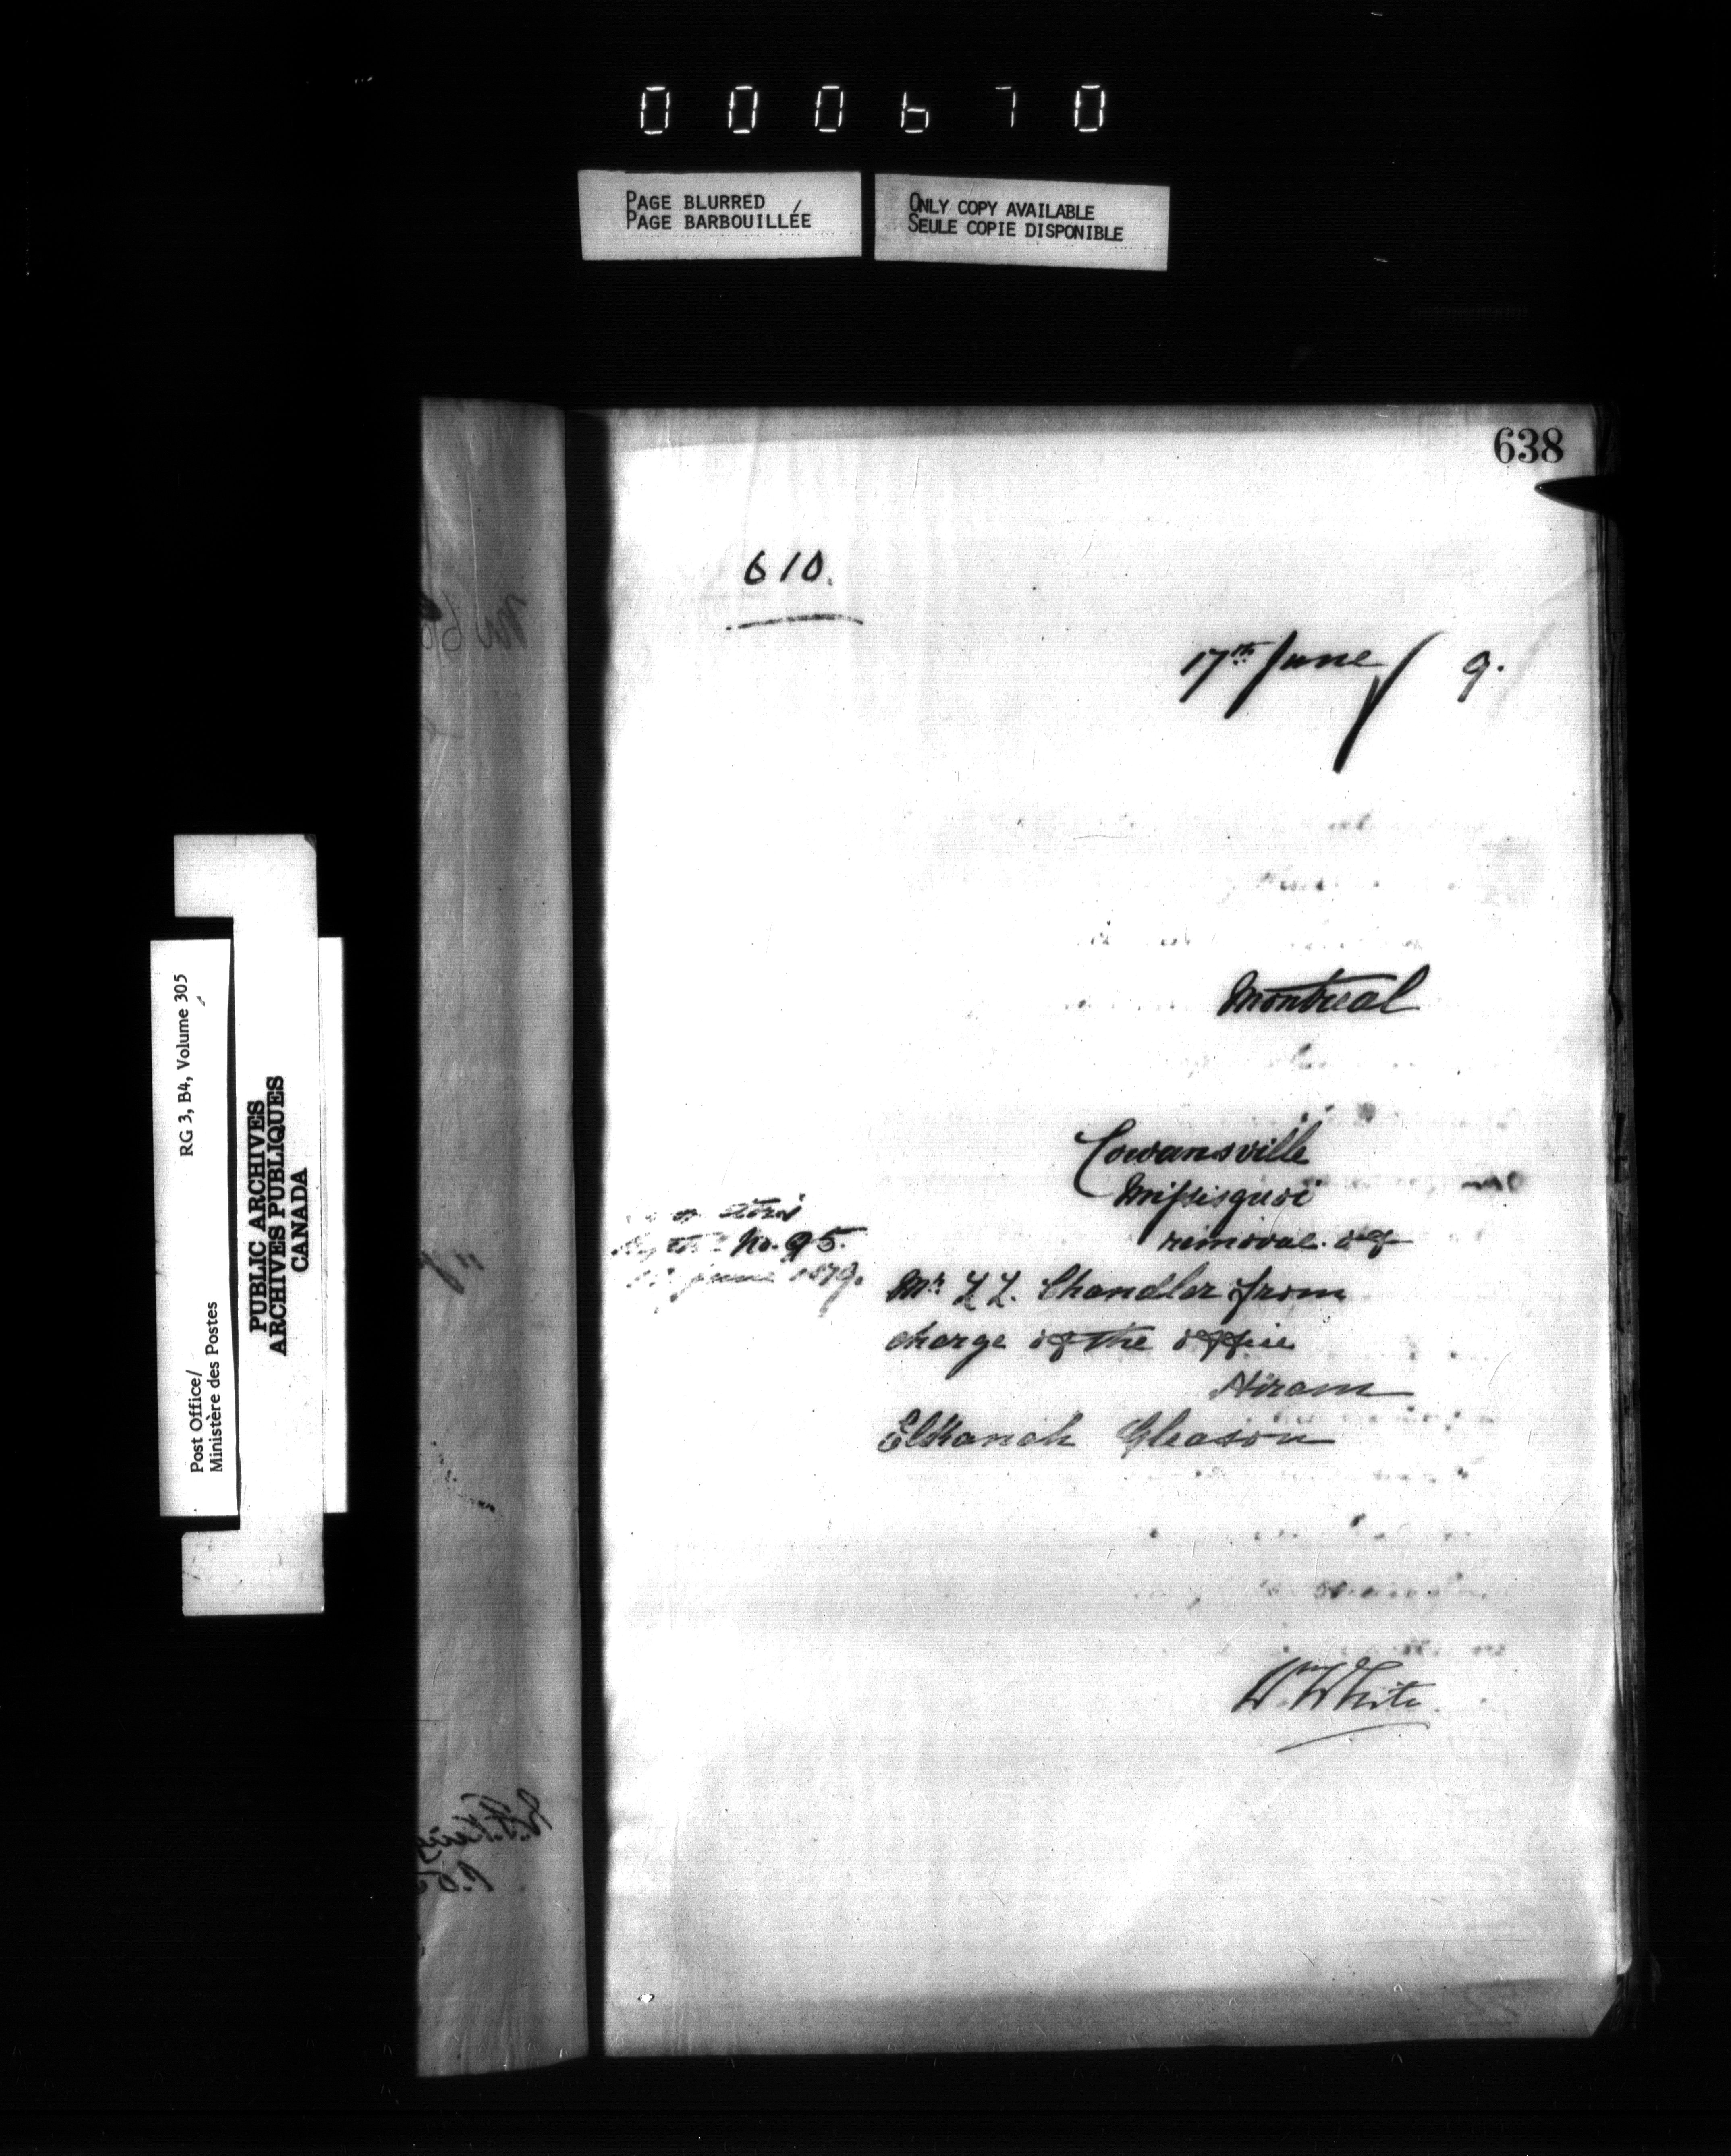 000670
PAGE BLURRED
PAGE BARBOUILLÉE
ONLY COPY AVAILABLE
SEULE COPIE DISPONIBLE
638
610.
17th June / 9.
Montreal
Cowansville
Missisquoi
removal of
No. 95.
June 1879.
Mr. Chandler from
charge of the office
Hiram
Elkanah Gleason
Wm White
RG 3, B4, Volume 305
Post Office/
Ministère des Postes
PUBLIC ARCHIVES
ARCHIVES PUBLIQUES
CANADA